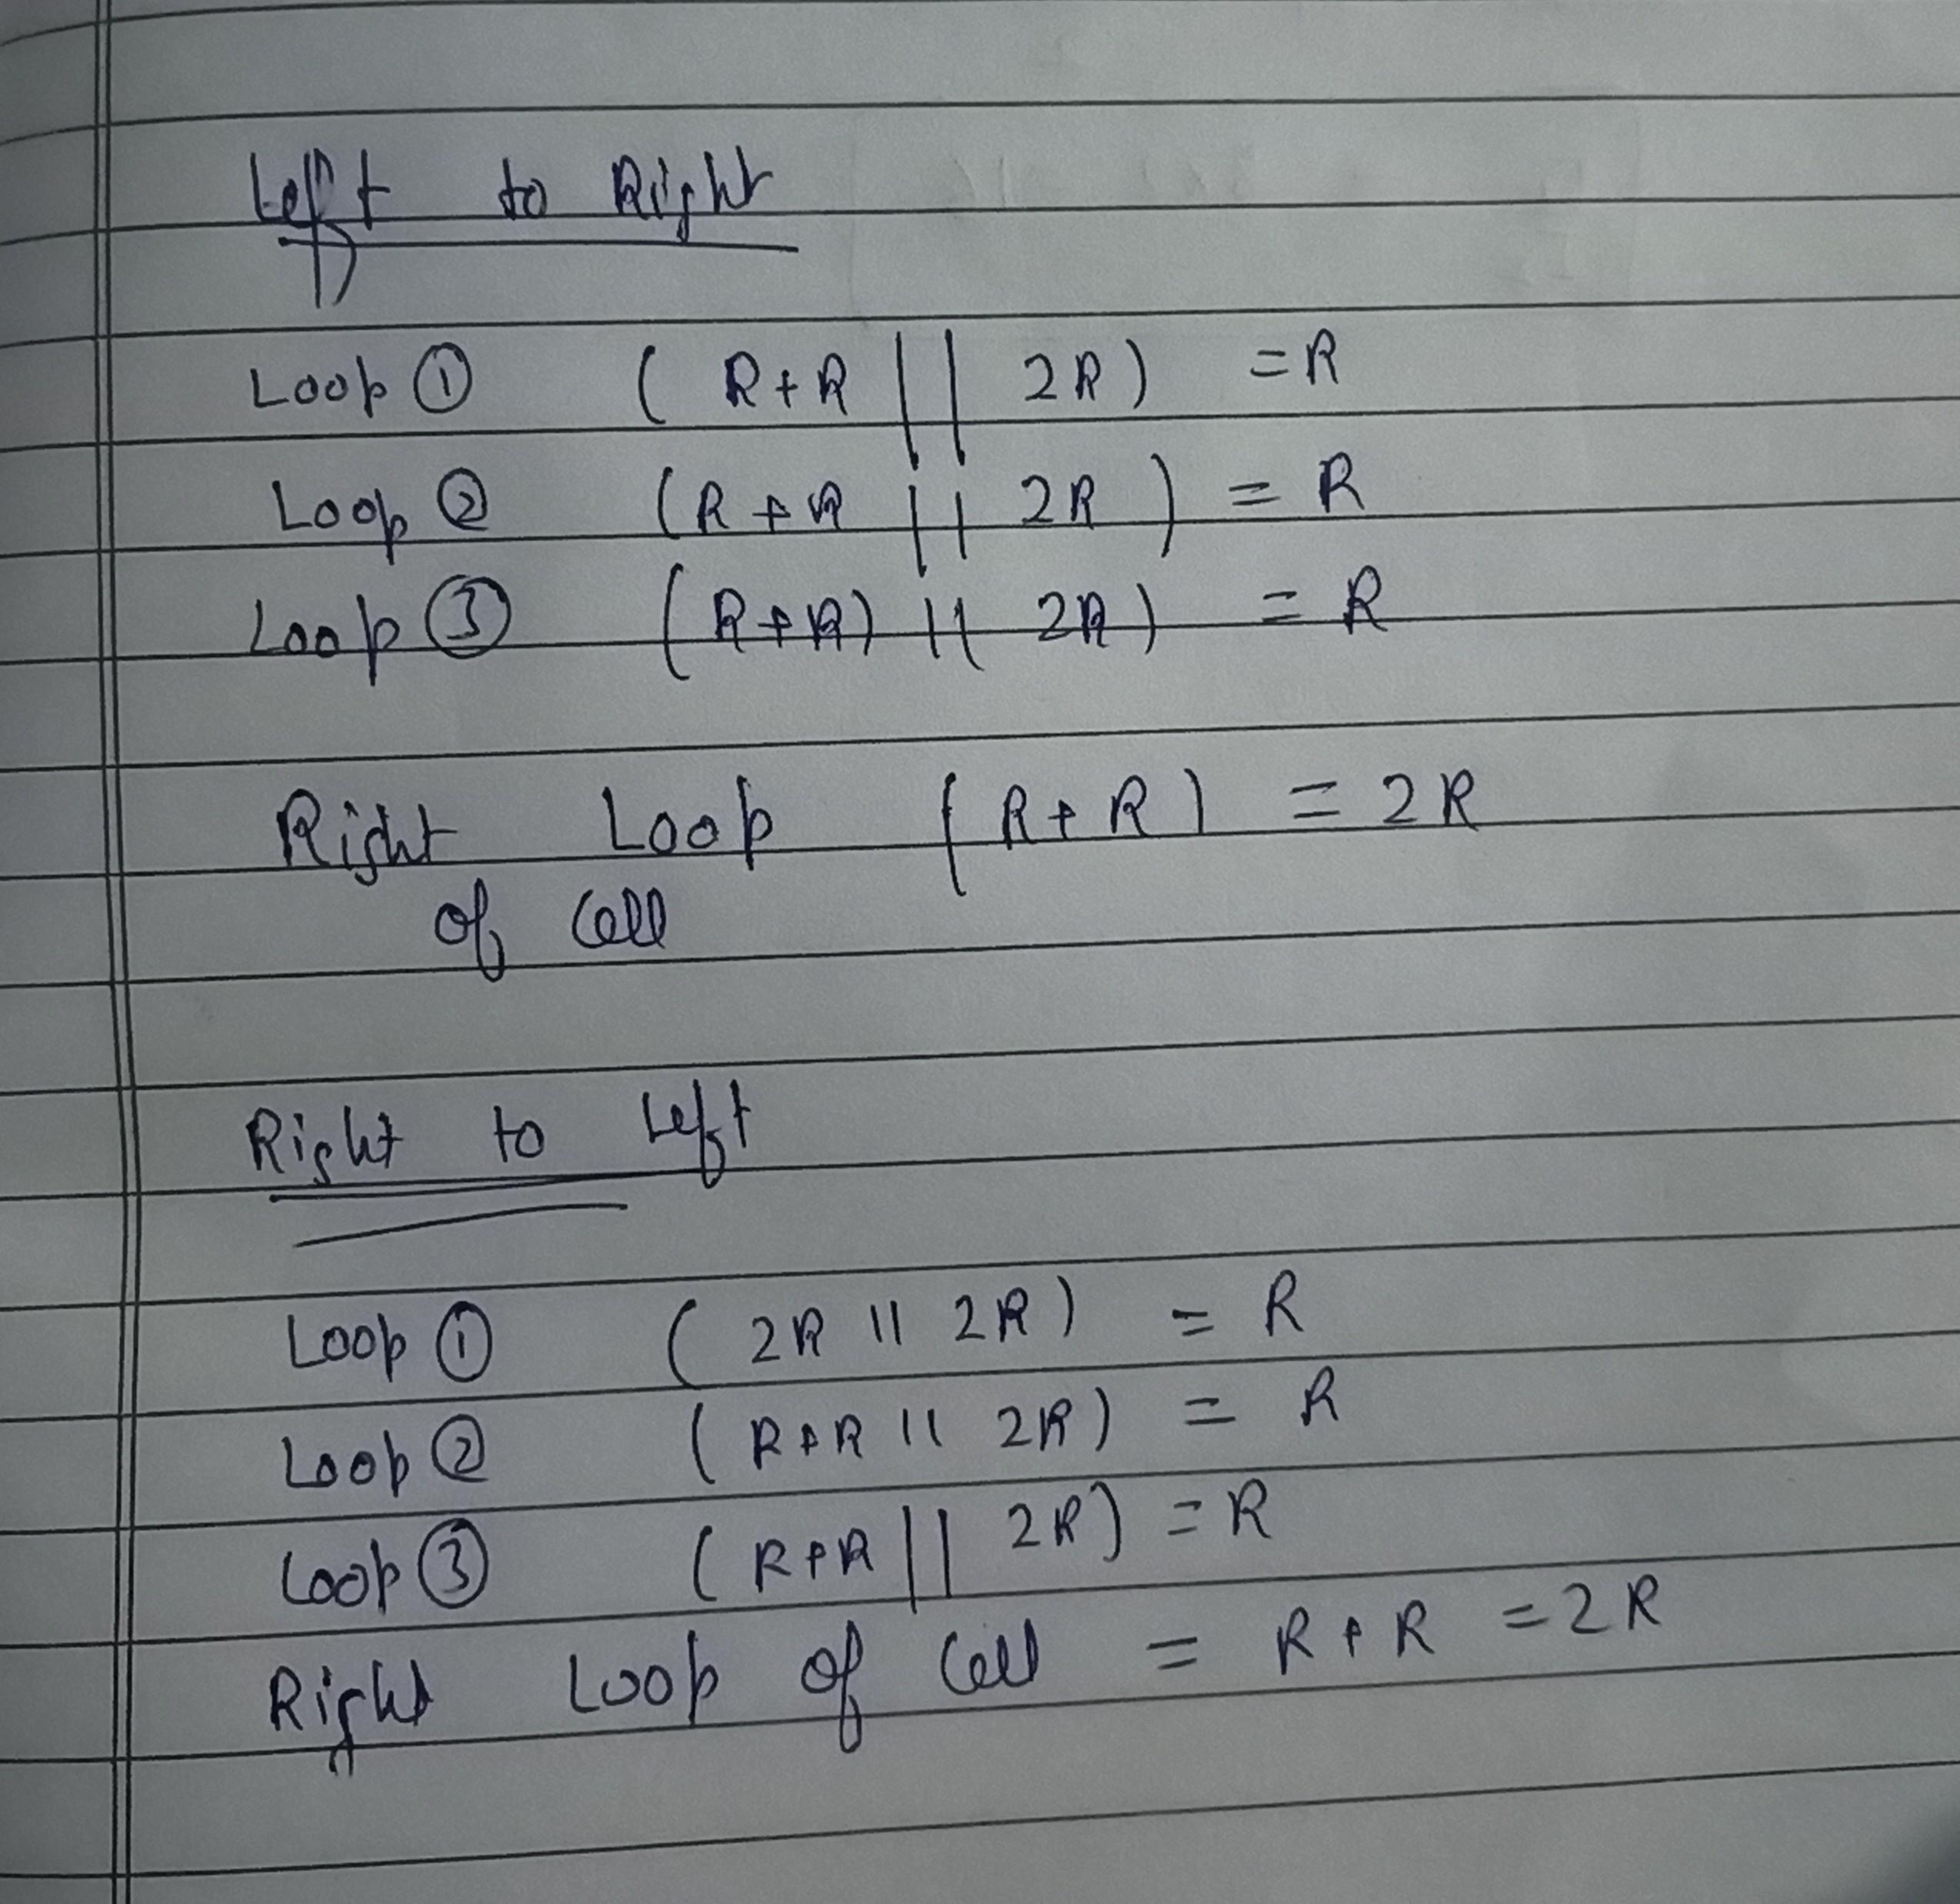 Left to Right
Loop ① ( R+R || 2R) =R
Loop ② (R+R || 2R ) = R
Loop ③ (R+R) || 2R) = R
Right Loop (R+R) = 2R
of Cell
Right to Left
Loop ① ( 2R || 2R) = R
Loop ② ( R+R || 2R) = R
Loop ③ ( R+R || 2R) =R
Right Loop of Cell = R+R =2R